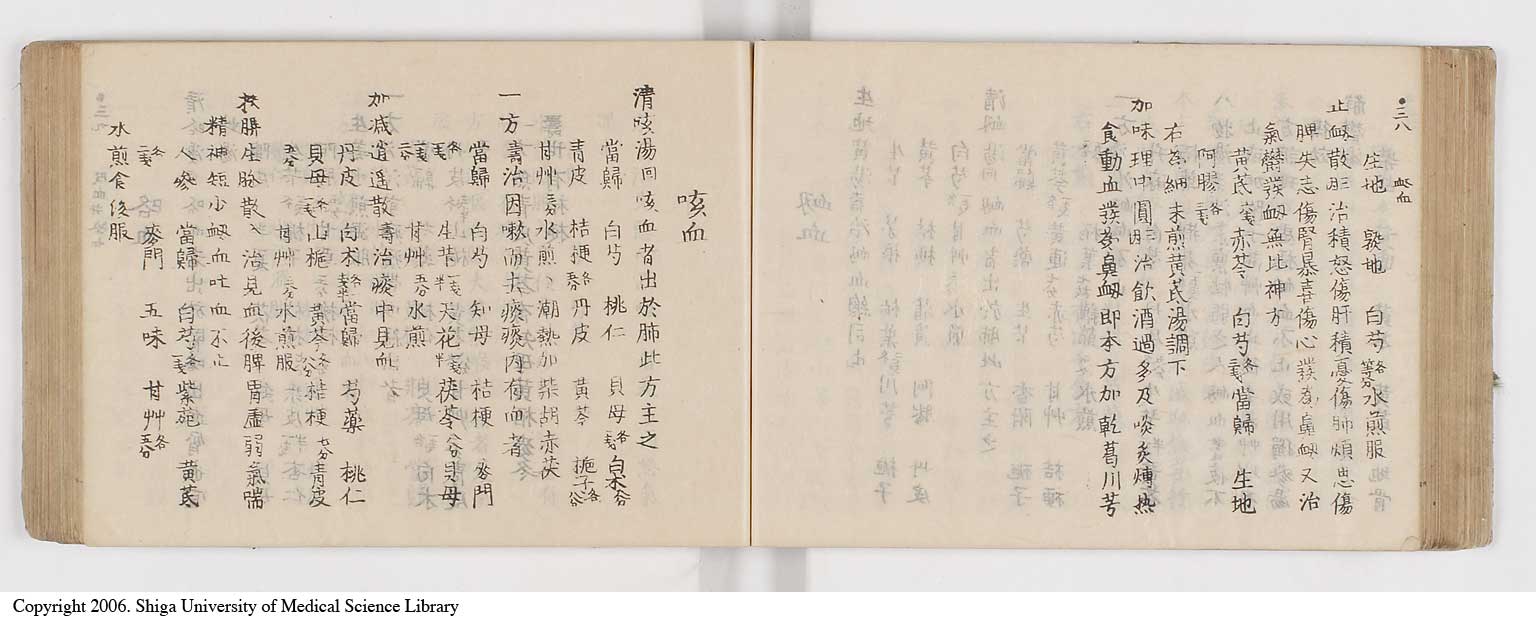 三八 衂血
生地 熟地 白芍各等分水煎服
止衂散 治積怒傷肝積憂傷肺煩思傷
脾失志傷腎暴喜傷心 鼻衂又治
氣欝 衂無比神方
黄芪 赤苓 白芍各 當歸 生地
阿膠各
右為細末煎黄芪湯調下
加味理中圓 治飲酒過多及啖炙煿热
食動血 鼻衂即本方加乾葛川芎
咳血
清咳湯回 咳血者出於肺此方主之
當歸 白芍 桃仁 貝母各
青皮 桔梗 丹皮 黄芩 栀子各
甘艸 水煎 潮熱加柴胡赤茯
一方 壽 治因嗽而夫痰痰内有血者
當歸 白芍 知母 桔梗 麥門
各 生芐 天花 茯苓 貝母
甘艸 水煎
加减逍遥散 壽 治痰中見血
丹皮 白术 當歸 芍薬 桃仁
貝母 山栀 黄芩 桔梗 青皮
甘艸 水煎服
扶脾生脉散 入 治見血後脾胃虚弱氣喘
精神短少衂血吐血不止
人參 當歸 白芍 紫苑 黄芪
各 麥門 五味 甘艸各五分
水煎食後服
Copyright 2006. Shiga University of Medical Science Library